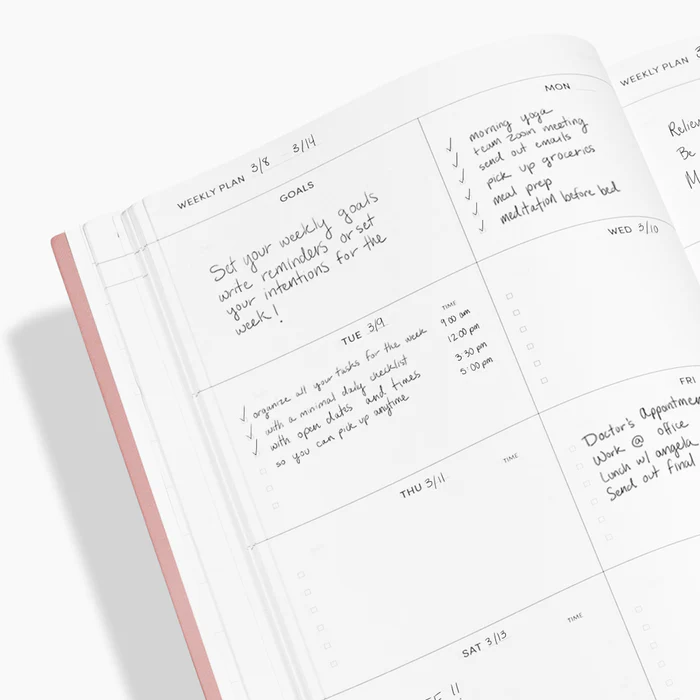 WEEKLY PLAN 3/8 3/14
GOALS
Set your weekly goals
write reminders or set
your intentions for the
week!
MON
morning yoga
team zoom meeting
send out emails
pick up groceries
meal prep
meditation before bed
TUE 3/9
TIME
organize all your tasks for the week 9:00 am
with a minimal daily checklist 12:00 pm
with open dates and times 3:30 pm
so you can pick up anytime 5:00 pm
WED 3/10
THU 3/11
TIME
FRI
Doctor's Appointmen
Work @ office
Lunch w/ angela
Send out final
SAT 3/13
TIME
WEEKLY PLAN
Be